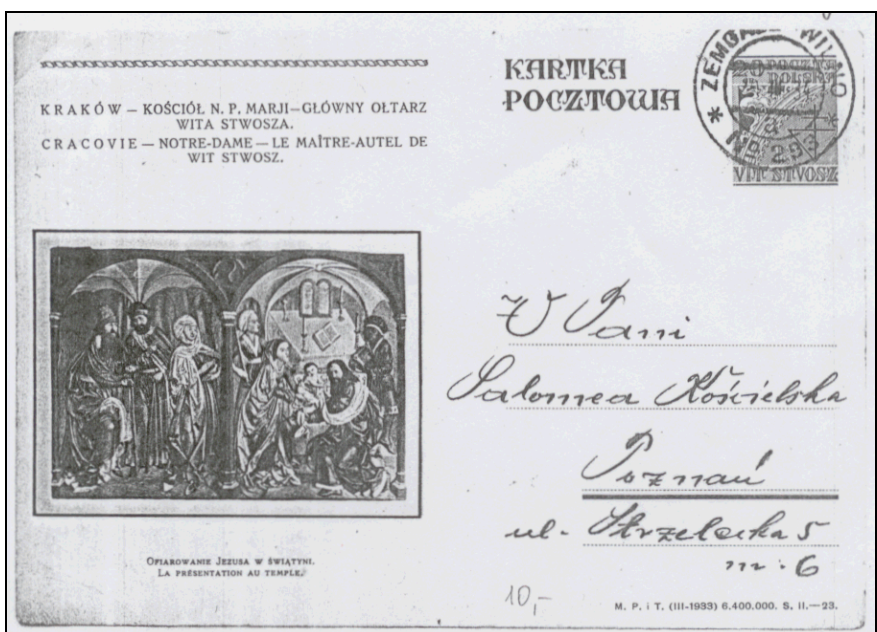 KRAKÓW – KOŚCIÓŁ N. P. MARJI–GŁÓWNY OŁTARZ
WITA STWOSZA.
CRACOVIE – NOTRE-DAME – LE MAÎTRE-AUTEL DE
WIT STWOSZ.
KARTKA
POCZTOWA
20 POCZTA
POLSKA
WIT STWOSZ
No 293
W Pani
Salomea Kościelska
Poznań
ul. Strzelecka 5
m. 6
OFIAROWANIE JEZUSA W ŚWIĄTYNI.
LA PRÉSENTATION AU TEMPLE.
10,–
M. P. i T. (III-1933) 6.400.000. S. II.—23.